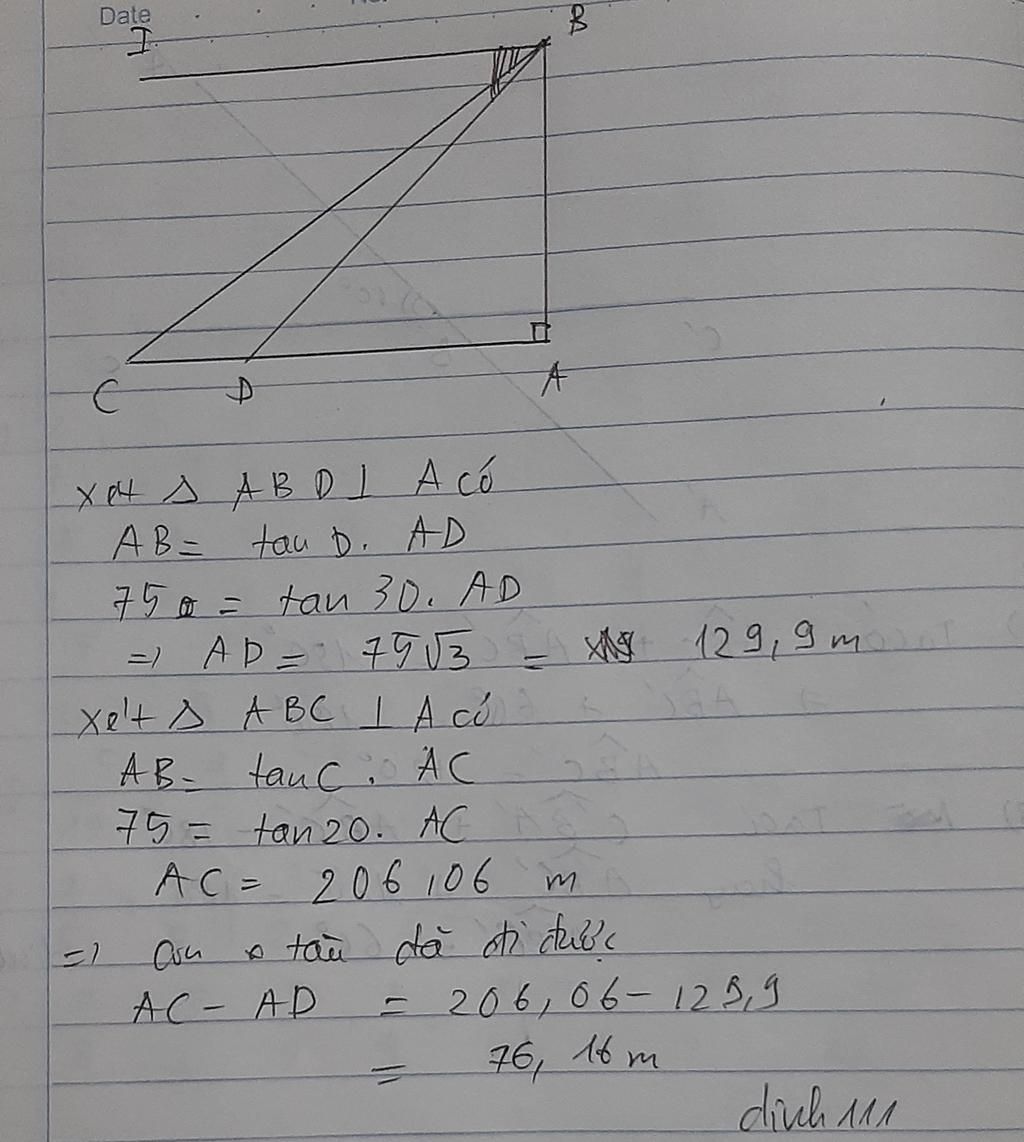 Date
I
B
C
D
A
xét Δ ABD ⊥ A có
AB = tan D. AD
75 = tan 30. AD
=> AD = 75√3 = 129,9 m
xét Δ ABC ⊥ A có
AB = tan C. AC
75 = tan 20. AC
AC = 206,06 m
=> tàu đã đi được
AC - AD = 206,06 - 129,9
= 76,16 m
dinh 111